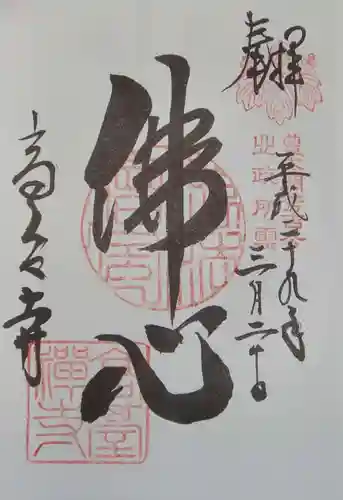 奉拝
平成二十九年
三月二十日
佛心
高台寺
高臺
禪寺